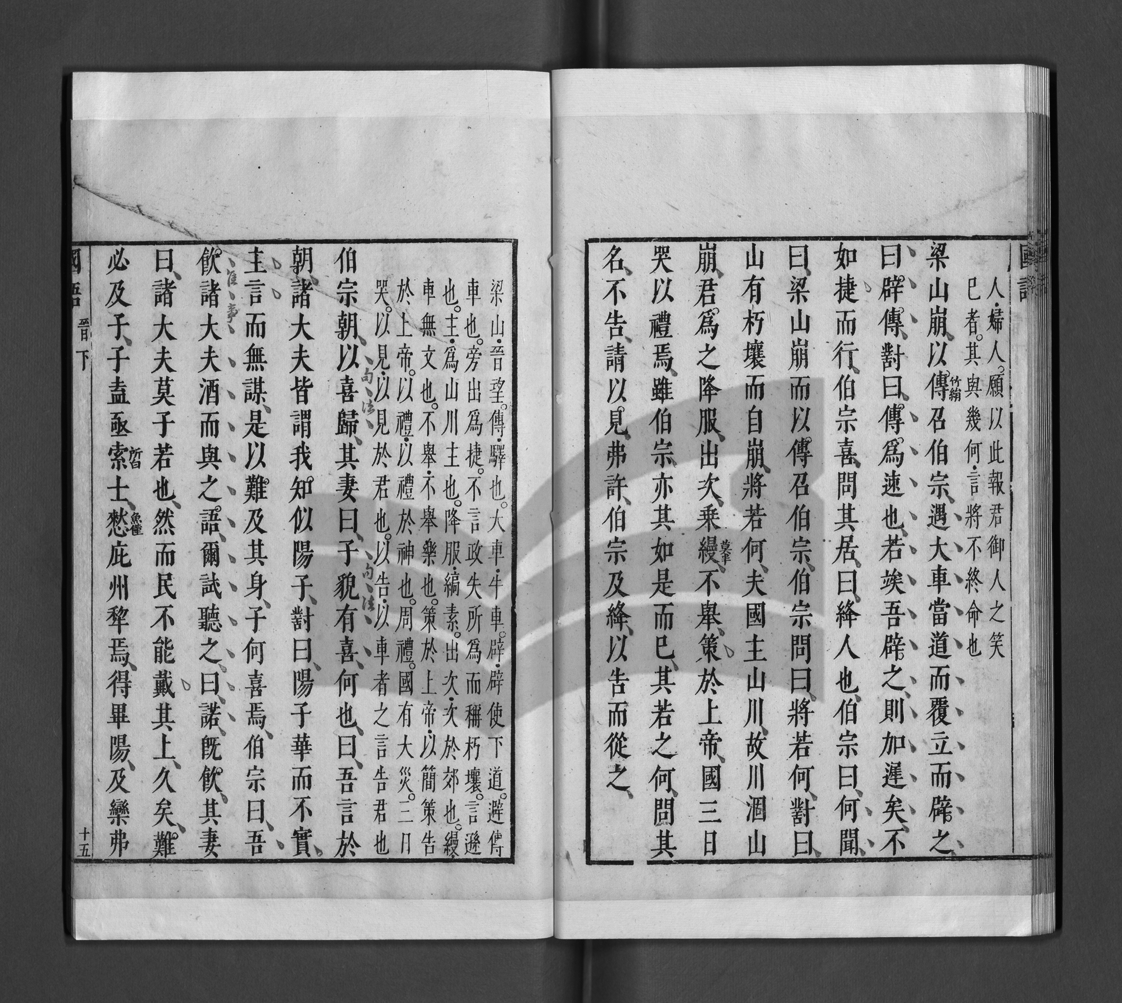 國語
人·婦人。願以此報君御人之笑
已者。其與幾何·言將不終命也
梁山崩、以傳召伯宗、遇大車當道而覆、立而辟之、
曰、辟傳、對曰、傳爲速也、若俟吾辟之、則加遲矣、不
如捷而行、伯宗喜、問其居、曰、絳人也、伯宗曰、何聞、
曰、梁山崩而以傳召伯宗、伯宗問曰、將若何、對曰、
山有朽壤而自崩、將若何、夫國主山川、故川涸山
崩、君爲之降服、出次、乘縵、不舉、策於上帝、國三日
哭以禮焉、雖伯宗亦其如是而已、其若之何、問其
名、不告、請以見、弗許、伯宗及絳、以告而從之、
梁山·晉望。傳·驛也。大車·牛車。辟·辟使下道。避傳
車也。旁出爲捷。不言政失所爲而稱朽壤。言遜
也。主·爲山川主也。降服·縞素。出次·次於郊也。縵
車無文也。不舉·不舉樂也。策於上帝·以簡策告
於上帝。以禮·以禮於神也。周禮。國有大災。三日
哭。以見·以見於君也。以告·以車者之言告君也
伯宗朝、以喜歸、其妻曰、子貌有喜、何也、曰、吾言於
朝、諸大夫皆謂我知似陽子、對曰、陽子華而不實、
主言而無謀、是以難及其身、子何喜焉、伯宗曰、吾
飲諸大夫酒而與之語、爾試聽之、曰、諾、旣飲、其妻
曰、諸大夫莫子若也、然而民不能戴其上久矣、難
必及子、子盍亟索士、憖庇州犂焉、得畢陽、及欒弗
國語
晉下
十五